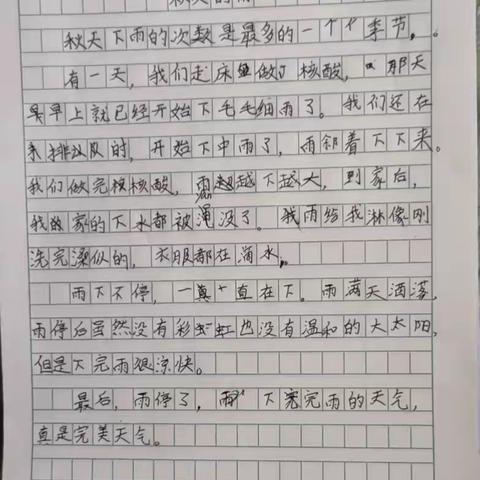 秋天的雨
秋天下雨的次数是最多的一个个季节。
有一天，我们起床做了核酸，那天
早上就已经开始下毛毛细雨了。我们还在
排队的时，开始下中雨了，雨邻着下下来。
我们做完核核酸，雨越越下越大，到家后，
我家的下水都被淹没了。我雨给我淋像刚
洗完澡似的，衣服都在滴水。
雨下不停，一直直在下。雨满天洒落，
雨停后虽然没有彩虹也没有温和的大太阳，
但是下完雨很凉快。
最后，雨停了，雨下完雨的天气，
真是完美天气。